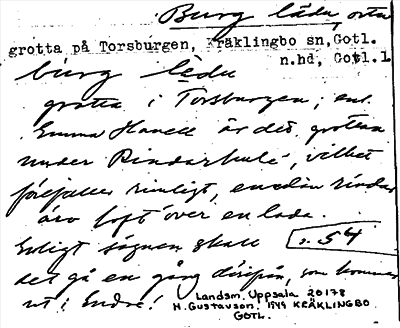 Burg lädu orta
grotta på Torsburgen, Kräklingbo sn, Gotl.
n.hd, Gotl.l
burg lédu
grotta i Torsburgen; enl.
Emma Hanell är det grottan
under Rindarhule, vilket
förefaller rimligt, emedan rindar
äro loft över en lada.
Enligt sägnen skall
s. 54
det gå en gång därifrån, som kommer
ut i Endre!
Landsm. Uppsala 20178
H. Gustavson. 1944 KRÄKLINGBO
GOTL.